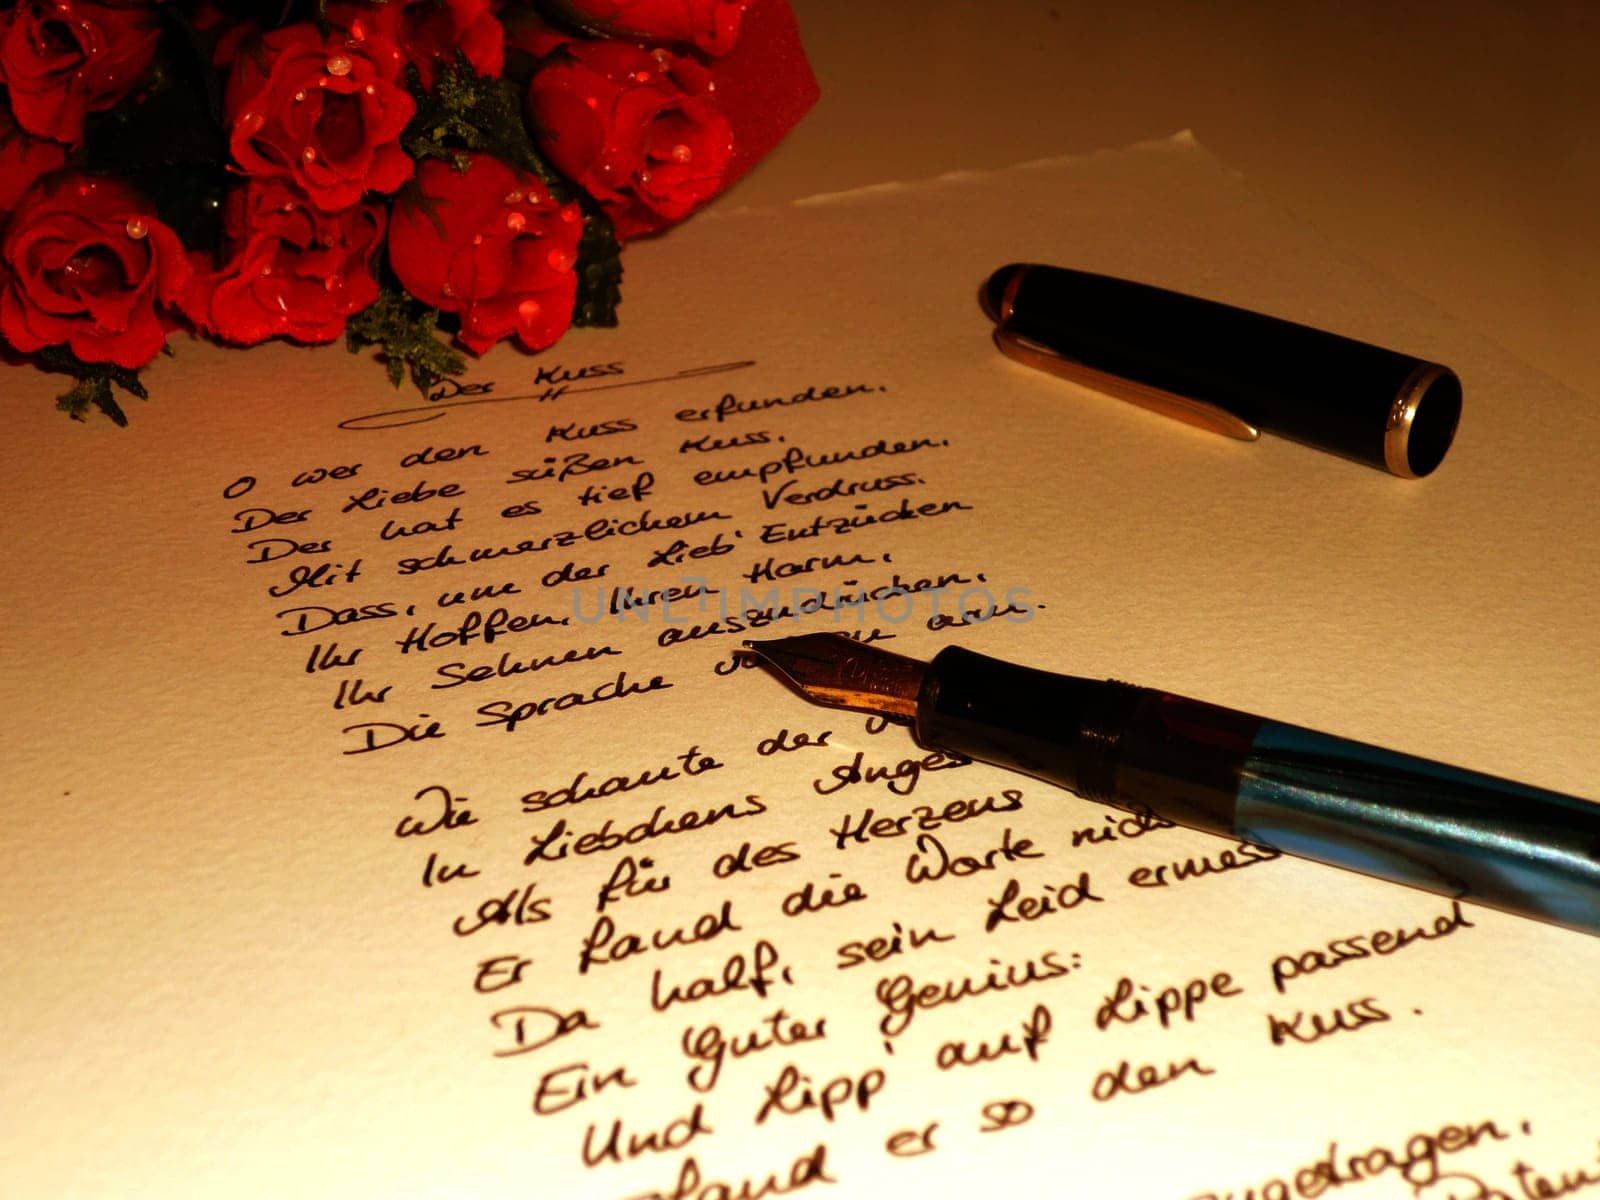 Der Kuss
O wer den Kuss erfunden.
Der Liebe süßen Kuss.
Der hat es tief empfunden.
Mit schmerzlichem Verdruss.
Dass, um der Lieb' Entzücken
Ihr Hoffen, Ihren Harm,
Ihr Sehnen auszudrücken,
Die Sprache zu arm.
Wie schaute der
In Liebchens
Als für des Herzens
Er fand die Worte
Da half, sein Leid
Ein Guter Genius:
Und Lipp' auf Lippe passend
er so den Kuss.